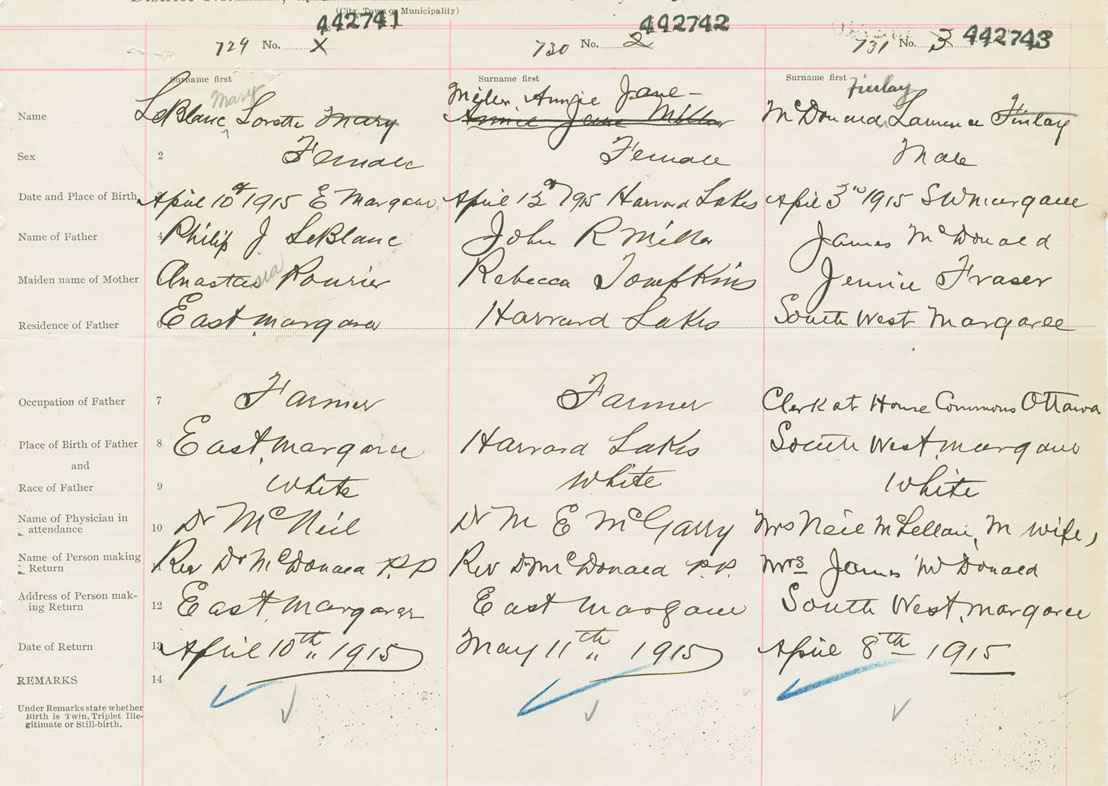 (City, Town or Municipality)
442741 442742 442743
729 No. X 730 No. 2 731 No. 3
Surname first Surname first Surname first
Mary Finlay
Name LeBlanc Lorette Mary Miller, Annie Jane - Annie Jane Miller McDonald Lawrence Finlay
Sex 2 Female Female Male
Date and Place of Birth April 10th 1915 E Margaree April 12th 1915 Harvard Lakes April 3rd 1915 SW Margaree
Name of Father 4 Philip J LeBlanc John R Miller James McDonald
Maiden name of Mother Anastasia Pourier Rebecca Tompkins Jennie Fraser
Residence of Father 6 East Margaree Harvard Lakes South West Margaree
Occupation of Father 7 Farmer Farmer Clerk at House Commons Ottawa
Place of Birth of Father 8 East Margaree Harvard Lakes South West Margaree
and
Race of Father 9 White White White
Name of Physician in attendance 10 Dr McNeil Dr M E McGarry Mrs Neil McLellan, M wife,
Name of Person making Return Rev Dr McDonald P.P Rev D McDonald P.P. Mrs James McDonald
Address of Person making Return 12 East Margaree East Margaree South West Margaree
Date of Return 13 April 10th 1915 May 11th 1915 April 8th 1915
REMARKS 14
Under Remarks state whether
Birth is Twin, Triplet Ille-
gitimate or Still-birth.